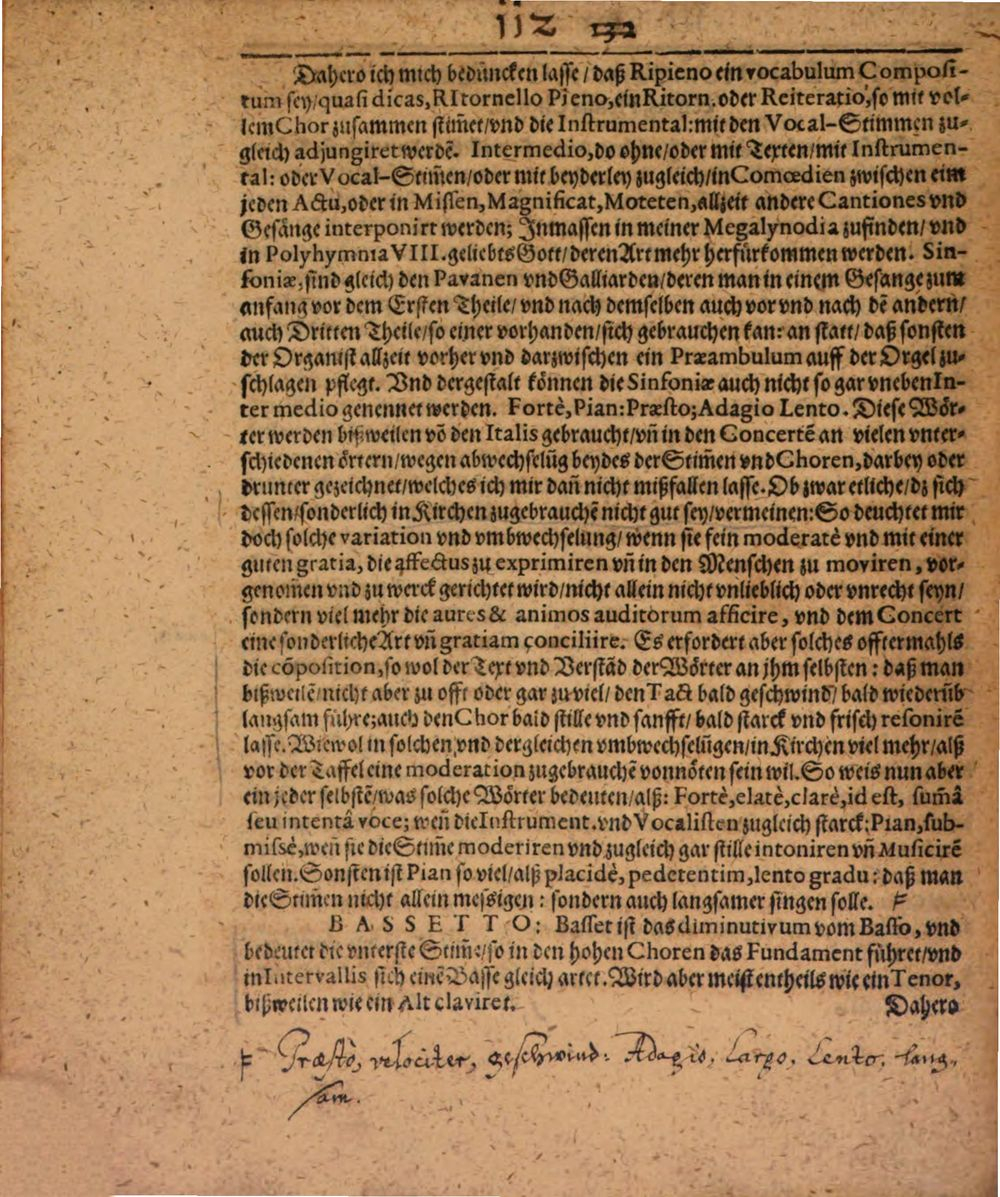 112 132
Dahero ich mich bedüncken lasse/ daß Ripieno ein vocabulum Composi-
tum sey/quasi dicas, RItornello Pieno, ein Ritorn. oder Reiteratio, so mit vol-
lem Chor zusammen stim̃et/vnd die Instrumental: mit den Vocal-Stimmen zu-
gleich adjungiret werdẽ. Intermedio, do ohne/oder mit Texten/mit Instrumen-
tal: oder Vocal-Stim̃en/oder mit beyderley zugleich/in Comœdien zwischen eim
jeden Actu, oder in Missen, Magnificat, Moteten, allzeit andere Cantiones vnd
Gesänge interponirt werden; Jnmassen in meiner Megalynodia zufinden/ vnd
in Polyhymnia VIII. geliebts Gott/ deren Art mehr herfürkommen werden. Sin-
foniæ, sind gleich den Pavanen vnd Galliarden/deren man in einem Gesange zum
anfang vor dem Ersten Theile/ vnd nach demselben auch vor vnd nach dẽ andern/
auch Dritten Theile/so einer vorhanden/sich gebrauchen kan: an statt/ daß sonsten
der Organist allzeit vorher vnd darzwischen ein Præambulum auff der Orgel zu-
schlagen pflegt. Vnd dergestalt können die Sinfoniæ auch nicht so gar vneben In-
ter medio genennet werden. Fortè, Pian: Præsto; Adagio Lento. Diese Wör-
ter werden bißweilen võ den Italis gebraucht/vñ in den Concertẽ an vielen vnter-
schiedenen örtern/wegen abwechselũg beydes der Stim̃en vnd Choren, darbey oder
drunter gezeichnet/welches ich mir dañ nicht mißfallen lasse. Ob zwar etliche/dz sich
dessen/sonderlich in Kirchen zugebrauchẽ nicht gut sey/vermeinen: So deuchtet mir
doch solche variation vnd vmbwechselung/ wenn sie fein moderatè vnd mit einer
guten gratia, die affectus zu exprimiren vñ in den Menschen zu moviren, vor-
genom̃en vnd zu werck gerichtet wird/nicht allein nicht vnlieblich oder vnrecht seyn/
sondern viel mehr die aures & animos auditorum afficire, vnd dem Concert
eine sonderliche Art vñ gratiam conciliire. Es erfordert aber solches offtermahls
die cõposition, so wol der Text vnd Verstãd der Wörter an jhm selbsten: daß man
bißweilẽ/nicht aber zu offt oder gar zu viel/ den Tact bald geschwind/ bald wiederũb
langsam führe; auch den Chor bald stille vnd sanfft/ bald starck vnd frisch resonirẽ
lasse. Wiewol in solchen vnd dergleichen vmbwechselũgen/in Kirchen viel mehr/alß
vor der Taffel eine moderation zugebrauchẽ vonnöten sein wil. So weis nun aber
ein jeder selbstẽ/was solche Wörter bedeuten/alß: Fortè, elatè, clarè, id est, sum̃â
seu intentâ voce; weñ die Instrument. vnd Vocalisten zugleich starck; Pian, sub-
missè, weñ sie die Stim̃e moderiren vnd zugleich gar stille intoniren vñ Musicirẽ
sollen. Sonsten ist Pian so viel/alß placidè, pedetentim, lento gradu: daß man
die Stim̃en nicht allein messigen: sondern auch langsamer singen solle. F
BASSETTO: Basset ist das diminutivum vom Basso, vnd
bedeutet die vnterste Stim̃e/so in den hohen Choren das Fundament führet/vnd
in Intervallis sich einẽ Basse gleich artet. Wird aber meistentheils wie ein Tenor,
bißweilen wie ein Alt claviret. Dahero
F Præstò, velociter, geschwind: Adagio, Largo, Lento, lang-
sam.